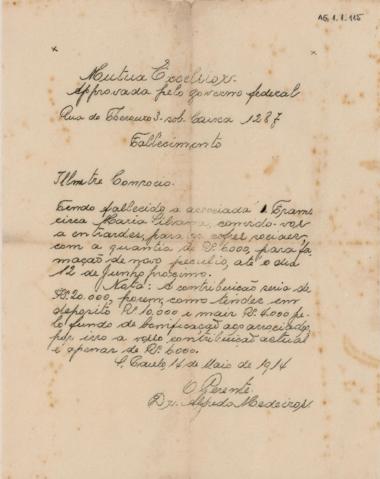 AG.1.1.115
Mutua Excelsior.
Approvada pelo governo federal
Rua do Thesouro 3-sob. Caixa 1287
Fallecimento
Illustre Consocio.
Tendo fallecido a associada Fran-
cisca Maria convido-vos
a entrardes, para os cofres sociaes,
com a quantia de Rs. 6.000, para fo
mação de novo peculio, até o dia
12 de Junho proximo.
Nota: A contribuição seria de
Rs. 20.000, porem, como tendes em
deposito Rs. 10.000 e mais Rs. 4.000 pe-
lo fundo de bonificação aos associados,
por isso a vossa contribuição actual
é apenas de Rs. 6.000.
S. Paulo, 14 de Maio de 1914
O Gerente.
Dr. Alfredo Medeiros.